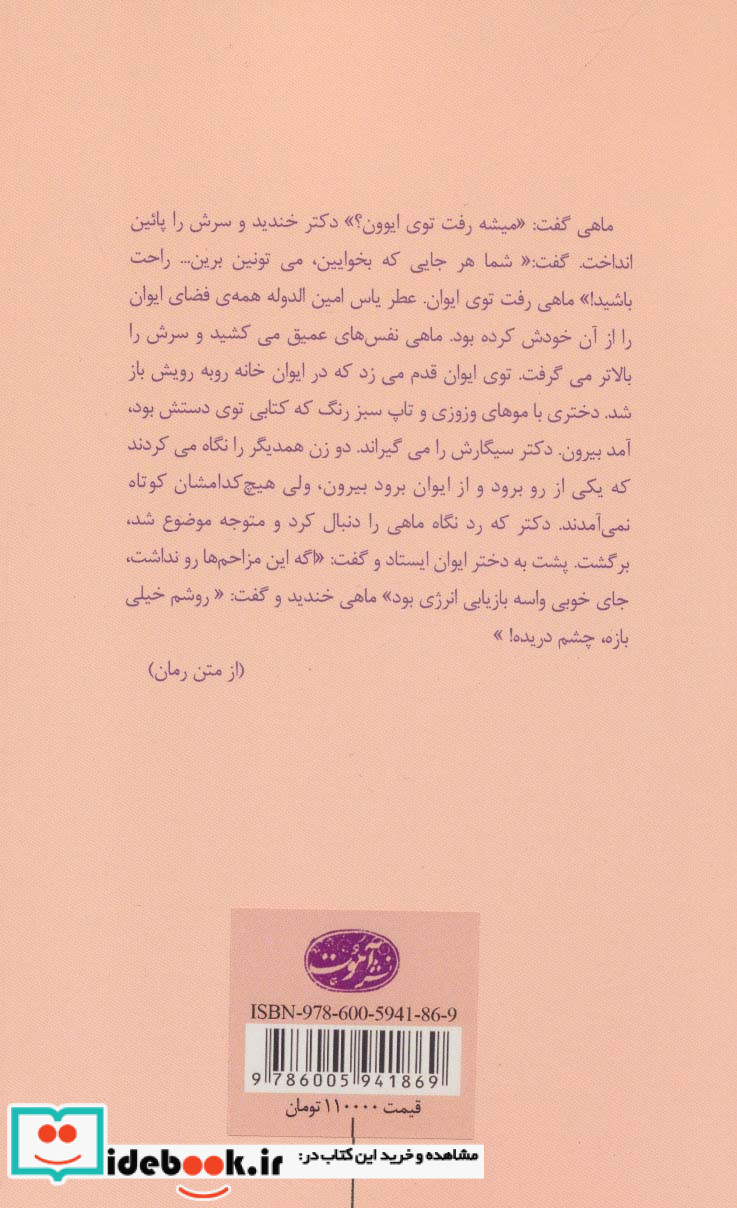 ماهی گفت: «میشه رفت توی ایوون؟» دکتر خندید و سرش را پائین
انداخت. گفت:« شما هر جایی که بخوایین، می تونین برین... راحت
باشید!» ماهی رفت توی ایوان. عطر یاس امین الدوله همه‌ی فضای ایوان
را از آن خودش کرده بود. ماهی نفس‌های عمیق می کشید و سرش را
بالاتر می گرفت. توی ایوان قدم می زد که در ایوان خانه روبه رویش باز
شد. دختری با موهای وزوزی و تاپ سبز رنگ که کتابی توی دستش بود،
آمد بیرون. دکتر سیگارش را می گیراند. دو زن همدیگر را نگاه می کردند
که یکی از رو برود و از ایوان برود بیرون، ولی هیچ‌کدامشان کوتاه
نمی‌آمدند. دکتر که رد نگاه ماهی را دنبال کرد و متوجه موضوع شد،
برگشت. پشت به دختر ایوان ایستاد و گفت: «اگه این مزاحم‌ها رو نداشت،
جای خوبی واسه بازیابی انرژی بود» ماهی خندید و گفت: « روشم خیلی
بازه، چشم دریده! »
(از متن رمان)
نشر آموت
ISBN-978-600-5941-86-9
9 786005 941869
قیمت ۱۱۰۰۰۰ تومان
مشاهده و خرید این کتاب در:
idebook.ir